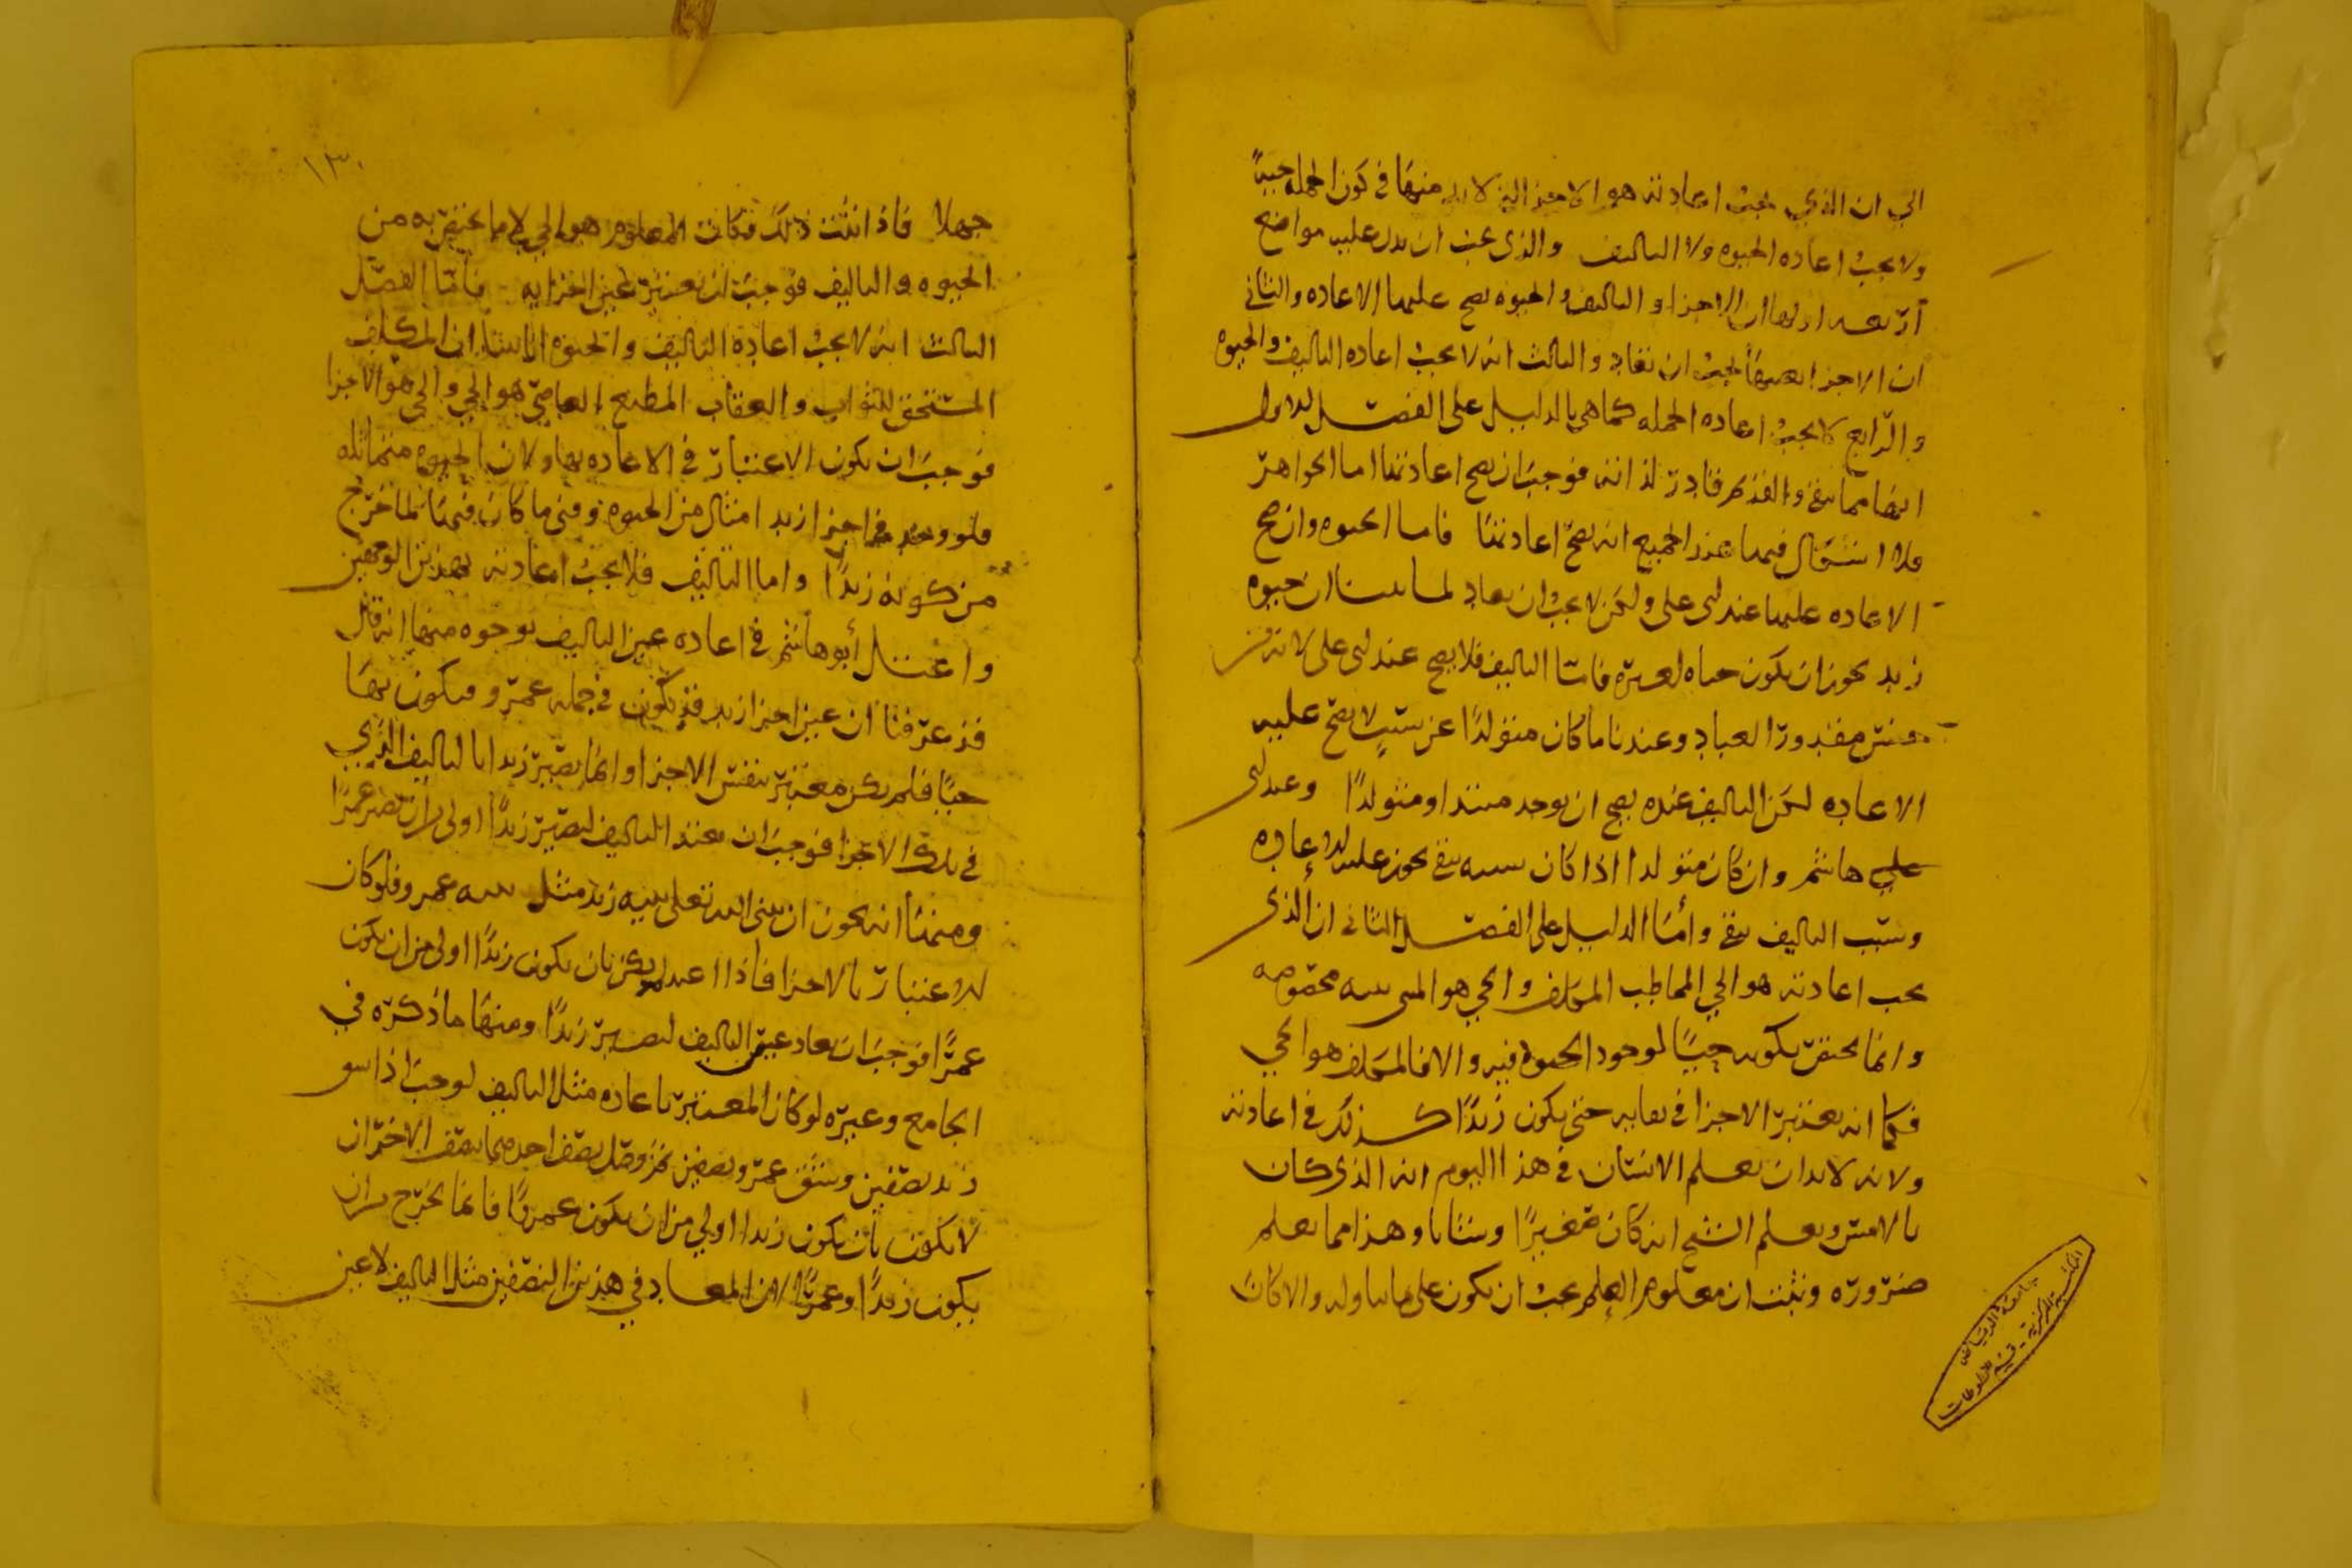 الي ان الذي يجب اعادته هو الاجزا التي لا بد منها في كون الجمله حيا
ولا يجب اعاده الحيوه ولا التاليف والذي يجب ان يدل عليه مواضع
اربعه اولها ان الاجزا والتاليف والحيوه يصح عليها الاعاده والثاني
ان الاجزا بعينها يجب ان تعاد والثالث انه لا يجب اعاده التاليف والحيوه
والرابع لا يجب اعاده الجمله كما هي بالدليل على الفصل الاول
انها مما يبقى والقديم قادر لذاته فوجب ان يصح اعادتها اما الجواهر
فلا اشكال فيها عند الجميع انه يصح اعادتها فاما الحيوه وان صح
الاعاده عليها عند ابي علي ولكن لا يجب ان يعاد لما بينا ان حيوه
زيد يجوز ان يكون حياه لغيره فاما التاليف فلا يصح عند ابي علي لانه من
جنس مقدور العباد وعندنا ما كان متولدا عن سبب لا يصح عليه
الاعاده لكن التاليف عنده يصح ان يوجد مبتدا ومتولدا وعند ابي
هاشم وان كان متولدا اذا كان سببه يبقى يجوز عليه الاعاده
وسبب التاليف يبقى وأما الدليل على الفصل الثاني ان الذي
يجب اعادته هو الحي المخاطب المكلف والحي هو المبني بنيه مخصوصه
وانما يختص بكونه حيا لوجود الحيوه فيه والا فالمكلف هو الحي
فكما انه يعتبر الاجزا في بقايه حتى يكون زيدا كذلك في اعادته
ولانه لا بد ان يعلم الانسان في هذا اليوم انه الذي كان
بالامس ويعلم الشيخ انه كان صغيرا وشابا وهذا مما يعلم
ضروره وثبت ان معلوم العلم يجب ان يكون على ما يتناوله والا كان
١٣٠
جهلا فاذا ثبت ذلك فكان المعلوم هو الحي لا ما يختص به من
الحيوه والتاليف فوجب ان يعتبر عين اجزايه فأما الفصل
الثالث انه لا يجب اعادة التاليف والحيوه لما بينا ان المكلف
المستحق للثواب والعقاب المطيع العاصي هو الحي والحي هو الاجزا
فوجب ان يكون الاعتبار في الاعاده بها ولان الحيوه متماثله
فلو وجد في اجزا زيد امثال من الحيوه ومتى ما كان فيها لما خرج
من كونه زيدا واما التاليف فلا يجب اعادته لهذين الوجهين
واعتل أبو هاشم في اعاده عين التاليف بوجوه منها انه قال
قد عرفنا ان عين اجزا زيد قد يكون في جمله عمرو ويكون بها
حيا فلم يكن معتبر بنفس الاجزا وانما يصير زيدا بالتاليف الذي
في تلك الاجزا فوجب ان يعتبر التاليف ليصير زيدا اولى من ان يصير عمرا
ومنها انه يجوز ان يبني الله تعلى بنيه زيد مثل بنيه عمرو فلو كان
الاعتبار بالاجزا فاذا اعيد لم يكن بان يكون زيدا اولى من ان يكون
عمرا فوجب ان يعاد عين التاليف ليصير زيدا ومنها ما ذكره في
الجامع وغيره لو كان المعتبر باعاده مثل التاليف لوجب اذا شق
زيد نصفين وشق عمرو نصفين ثم وصل نصف احدهما بنصف الاخر ان
لا يكون بان يكون زيدا اولي من ان يكون عمروا فانما يخرج من ان
يكون زيدا وعمرا لان المعاد في هذين النصفين مثل التاليف لا عين
جامعة الرياض
المكتبة المركزية - قسم المخطوطات